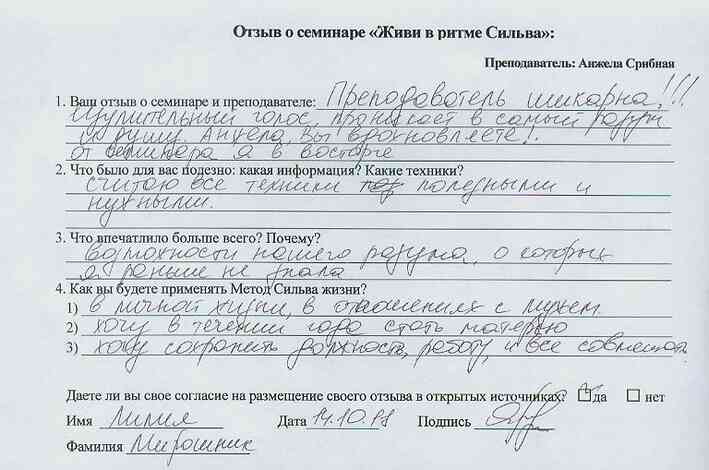 Отзыв о семинаре «Живи в ритме Сильва»:
Преподаватель: Анжела Срибная
1. Ваш отзыв о семинаре и преподавателе: Преподаватель шикарна!!!
Изумительный голос, проникает в самый разум
и душу. Анжела, Вы вдохновляете!
от семинара я в восторге
2. Что было для вас полезно: какая информация? Какие техники?
считаю все техники полезными и
нужными.
3. Что впечатлило больше всего? Почему?
возможности нашего разума, о которых
я раньше не знала
4. Как вы будете применять Метод Сильва жизни?
1) в личной жизни, в отношениях с мужем
2) хочу в течении года стать матерью
3) хочу сохранить должность, работу, и все совмещать
Даете ли вы свое согласие на размещение своего отзыва в открытых источниках? да нет
Имя Лилия Дата 14.10.18 Подпись
Фамилия Мирошник